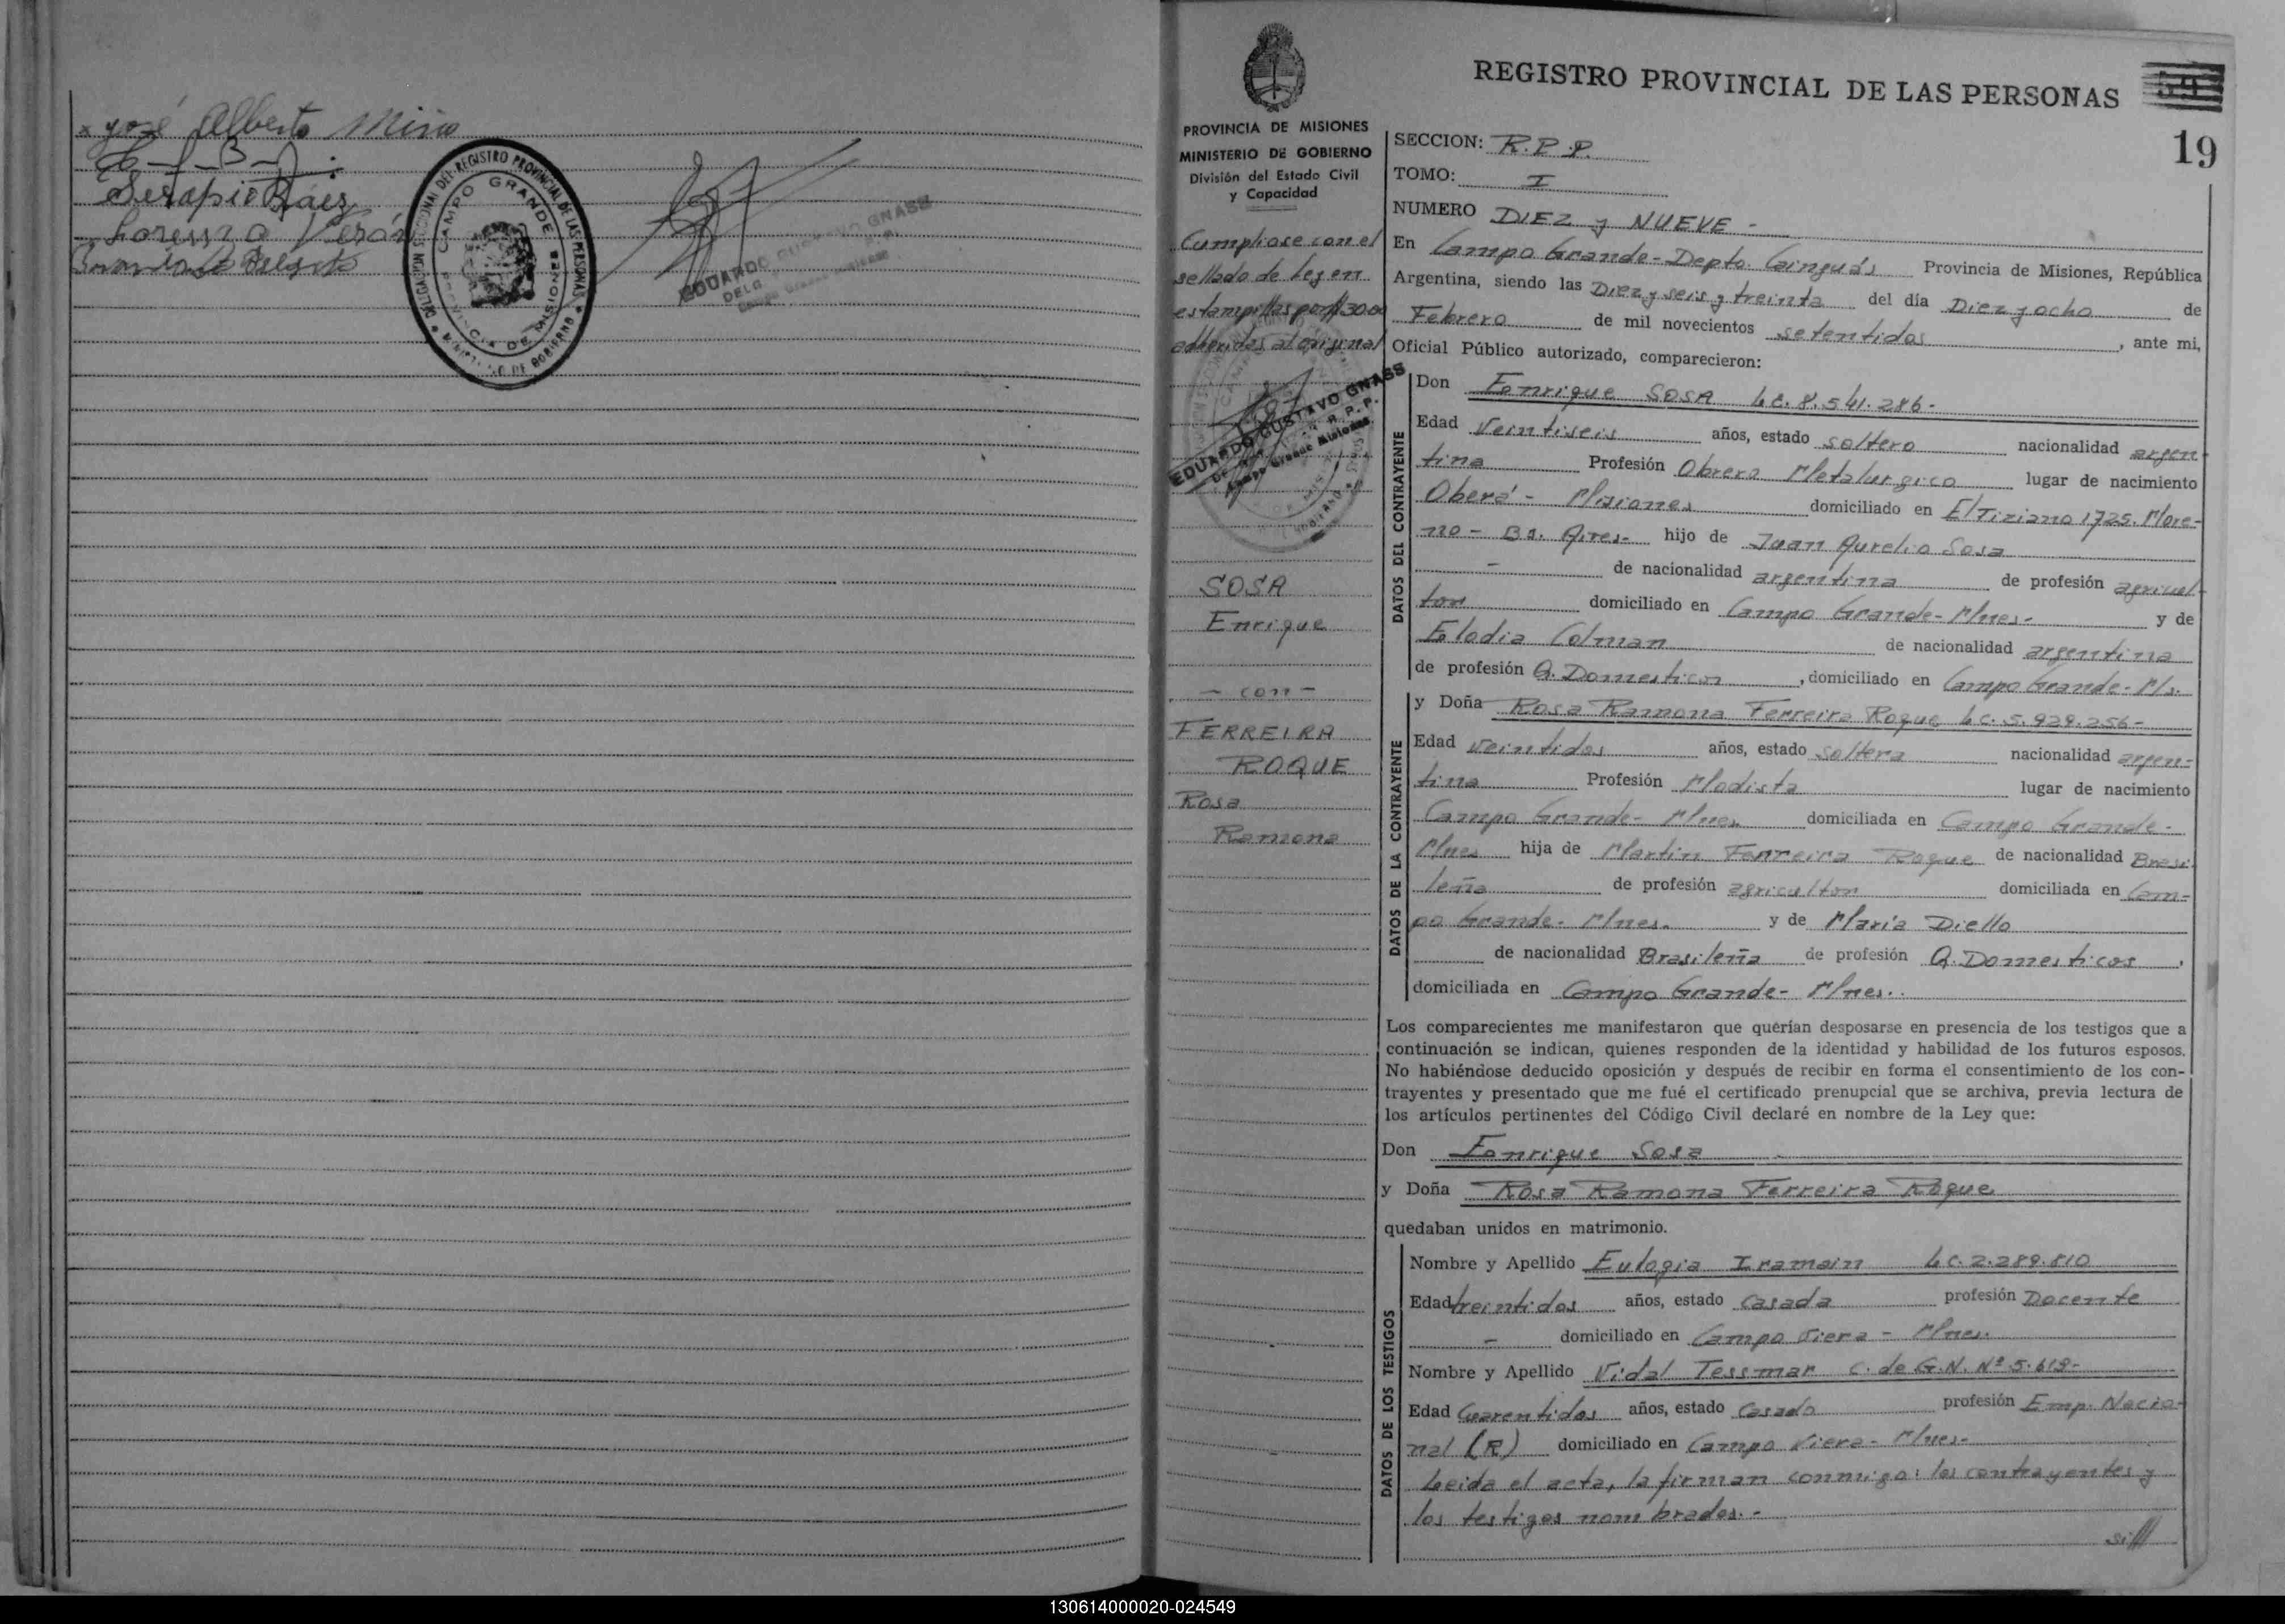 x José Alberto Miño
Serapio Báez
Lorenzo Verón
DELEGACION SECCIONAL DEL REGISTRO PROVINCIAL DE LAS PERSONAS
CAMPO GRANDE
PROVINCIA DE MISIONES
EDUARDO GUSTAVO GNASS
REGISTRO PROVINCIAL DE LAS PERSONAS
19
PROVINCIA DE MISIONES
MINISTERIO DE GOBIERNO
División del Estado Civil
y Capacidad
Cumpliose con el
sellado de Ley en
estampillas por $ 30.00
adheridas al original
EDUARDO GUSTAVO GNASS
Campo Grande Misiones
SOSA
Enrique
- con -
FERREIRA
ROQUE
Rosa
Ramona
SECCION: R.P.P.
TOMO: I
NUMERO DIEZ y NUEVE -
En Campo Grande - Depto. Cainguás Provincia de Misiones, República
Argentina, siendo las Diez y seis y treinta del día Diez y ocho de
Febrero de mil novecientos setentidos, ante mi,
Oficial Público autorizado, comparecieron:
DATOS DEL CONTRAYENTE
Don Enrique SOSA L.E. 8.541.286.
Edad Veintiseis años, estado soltero nacionalidad argen-
tina Profesión Obrero Metalurgico lugar de nacimiento
Oberá - Misiones domiciliado en El Tiziano 1725. More-
no - Bs. Aires - hijo de Juan Aurelio Sosa
- de nacionalidad argentina de profesión agricul-
tor domiciliado en Campo Grande - Mnes - y de
Elodia Colman de nacionalidad argentina
de profesión Q. Domesticos, domiciliado en Campo Grande - Ms.
DATOS DE LA CONTRAYENTE
y Doña Rosa Ramona Ferreira Roque L.C. 5.929.256 -
Edad Veintidos años, estado soltera nacionalidad argen-
tina Profesión Modista lugar de nacimiento
Campo Grande - Mnes. domiciliada en Campo Grande -
Mnes hija de Martin Ferreira Roque de nacionalidad Brasi-
leña de profesión agricultor domiciliada en Cam-
po Grande - Mnes. y de María Diello
de nacionalidad Brasileña de profesión Q. Domesticos,
domiciliada en Campo Grande - Mnes..
Los comparecientes me manifestaron que querían desposarse en presencia de los testigos que a
continuación se indican, quienes responden de la identidad y habilidad de los futuros esposos.
No habiéndose deducido oposición y después de recibir en forma el consentimiento de los con-
trayentes y presentado que me fué el certificado prenupcial que se archiva, previa lectura de
los artículos pertinentes del Código Civil declaré en nombre de la Ley que:
Don Enrique Sosa
y Doña Rosa Ramona Ferreira Roque
quedaban unidos en matrimonio.
DATOS DE LOS TESTIGOS
Nombre y Apellido Eulogia Iramain L.C. 2.289.810
Edad treintidos años, estado Casada profesión Docente
- domiciliado en Campo Viera - Mnes.
Nombre y Apellido Vidal Tessmar C. de G.N. Nº 5.619-
Edad Cuarentidos años, estado Casado profesión Emp. Nacio-
nal (R) domiciliado en Campo Viera - Mnes -
Leida el acta, la firman conmigo: los contrayentes y
los testigos nombrados. -
130614000020-024549